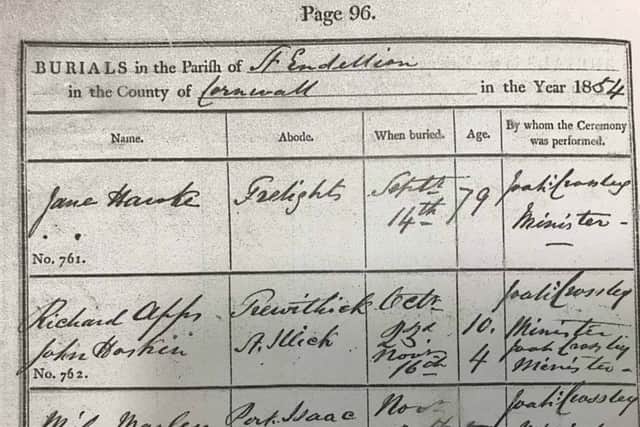 Page 96.
BURIALS in the Parish of St Endellion
in the County of Cornwall in the Year 1854
Name. Abode. When buried. Age. By whom the Ceremony was performed.
Jane Hawke Trelights Septr 14th 79 Crossley Minister
No. 761.
Richard Apps Trewithick Octr 23d 10. Crossley Minister
John Hoskin Novr 16th 4 Crossley Minister
No. 762.
Port Isaac Novr Crossley